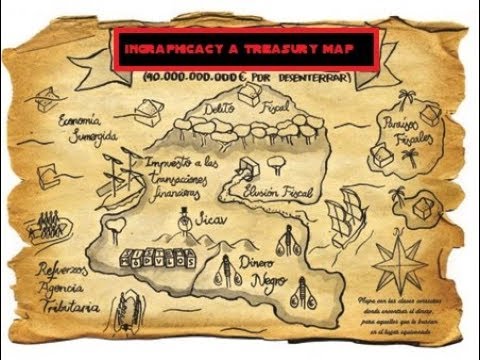 INGRAPHCACY A TREASURY MAP
(90.000.000.000€ POR DESENTERRAR)
Delito Fiscal
Economía
Sumergida
Paraísos
Fiscales
Impuesto a las
transacciones
financieras
Elusión Fiscal
Sicav
Dinero
Negro
Refuerzos
Agencia
Tributaria
Mapa con las claves correctas
donde encontrar el dinero,
para aquellos que lo buscan
en el lugar equivocado